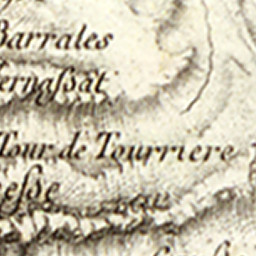 Barrales
ernaſsat
Tour de Tourriere
eſse